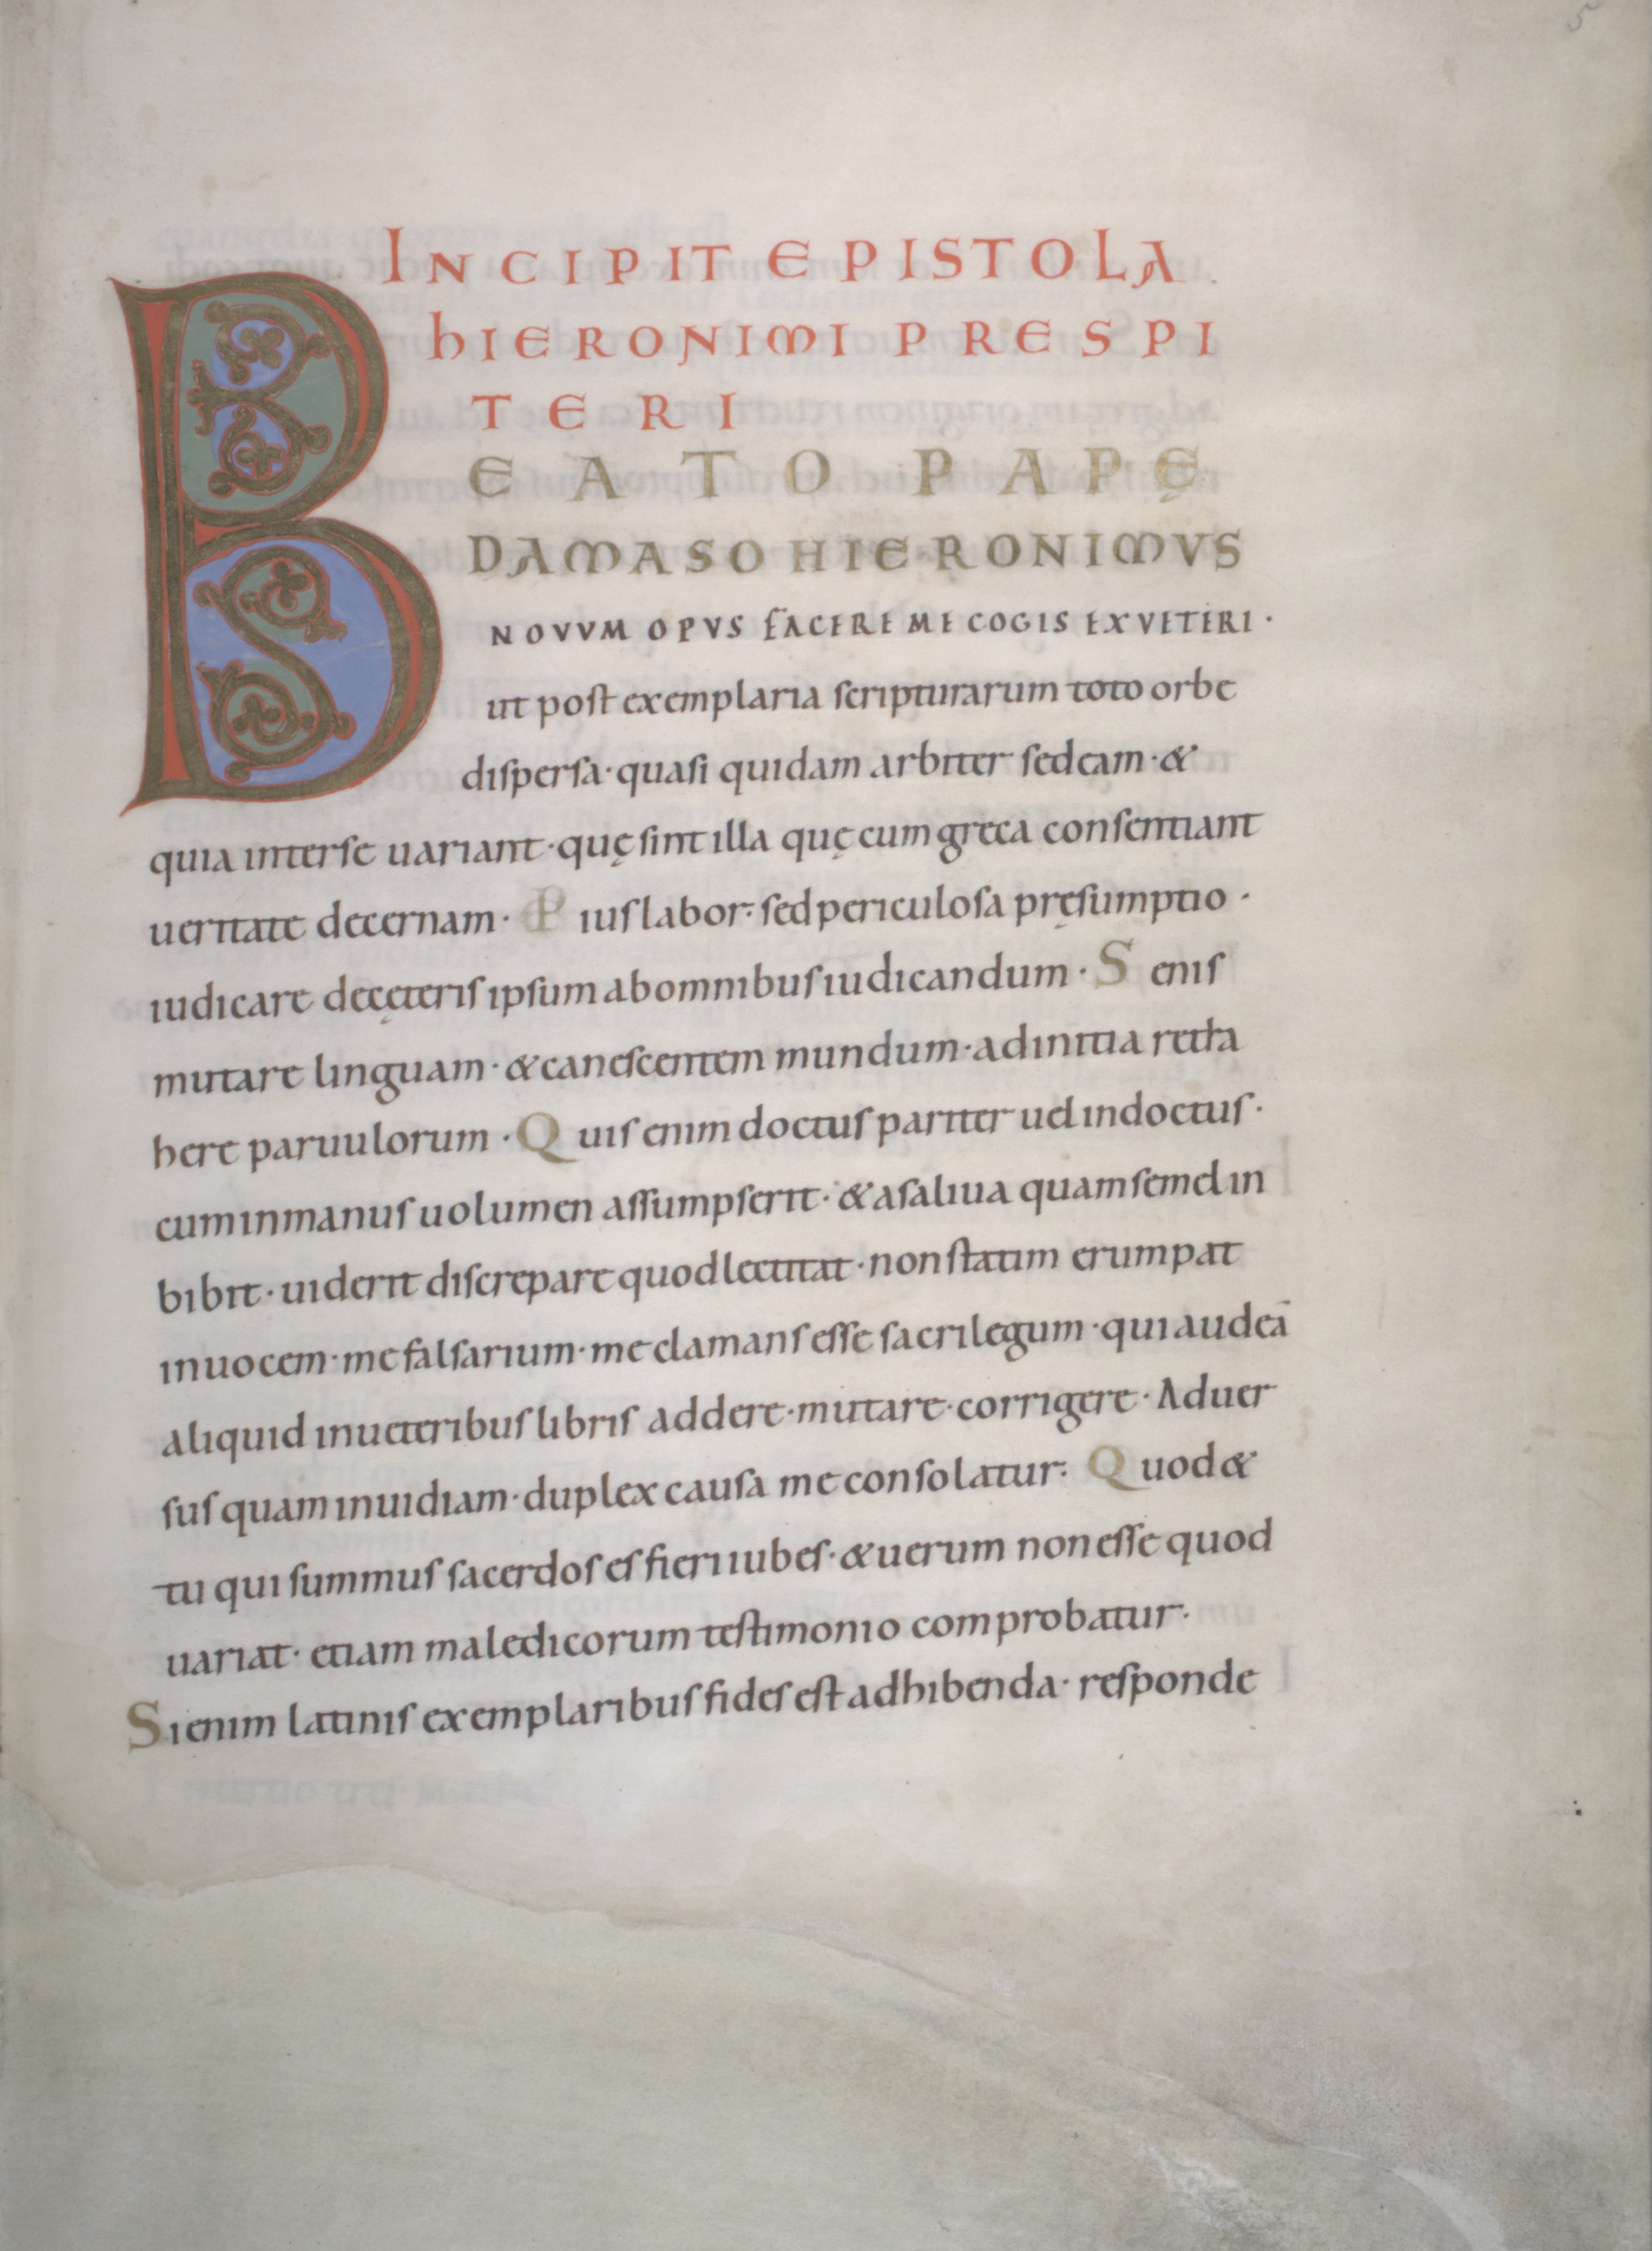 5
INCIPIT EPISTOLA
hIERONIMI PRESPI
TERI
BEATO PAPĘ
DAMASO HIERONIMVS
NOVVM OPVS FACERE ME COGIS EX VETERI·
ut post exemplaria scripturarum toto orbe
dispersa· quasi quidam arbiter sedeam· &
quia inter se uariant· quę sint illa quę cum greca consentiant
ueritate decernam· Pius labor: sed periculosa pręsumptio·
iudicare de cęteris ipsum ab omnibus iudicandum· Senis
mutare linguam· & canescentem mundum· ad initia retra
here paruulorum· Quis enim doctus pariter uel indoctus·
cum in manus uolumen assumpserit· & a saliua quam semel in
bibit· uiderit discrepare quod lectitat· non statim erumpat
in uocem· me falsarium· me clamans esse sacrilegum· qui audeā
aliquid in ueteribus libris addere· mutare· corrigere· Aduer
sus quam inuidiam· duplex causa me consolatur: Quod &
tu qui summus sacerdos es fieri iubes· & uerum non esse quod
uariat· etiam maledicorum testimonio comprobatur·
Si enim latinis exemplaribus fides est adhibenda· responde